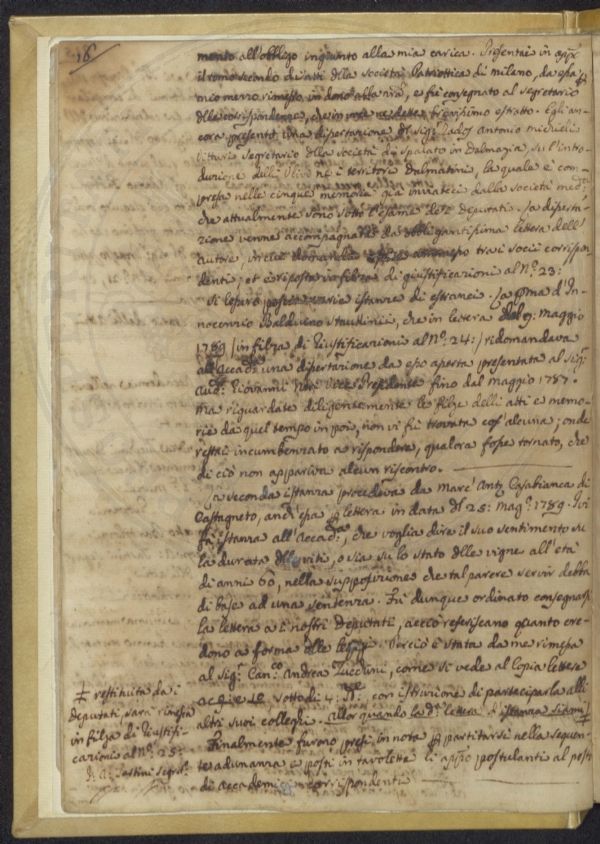 18
mento all'obbligo ingiunto alla mia carica. Presentai in app.o
il tomo secondo di atti della Società Patriottica di Milano, da essa
mio mezzo rimesso in dono alla nra, e fu consegnato al segretario
delle corrispondenze, che ne brevissimo estratto. Egli an-
cora presentò una dissertazione del Sig.r Antonio Michieli
Vitturi Segretario della società di Spalato in Dalmazia, su l'intro-
duzione delli Ulivi ne i territori Dalmatini, la quale è com-
presa nelle cinque memorie già inviateci dalla società med.
che attualmente sono sotto l'esame de i deputati. La disserta-
zione venne accompagnata da obbligantissima lettera dell'
autore, in cui domanda tra i socii corrispon-
denti, et è riposta in filza di giustificazioni al N.o 23:
Si lessero poscia varie istanze di estranei. La p.ma d'In-
nocenzio Balduino che in lettera del 9: Maggio
1789 / in filza di Giustificazioni al N.o 24: / ridomandava
all'Accad.a una dissertazione da esso aperta presentata al Sig.r
Giovanni Neri Vice Presidente fino dal maggio 1787.
Ma riguardate diligentemente le filze delli atti e memo-
rie da quel tempo in poi, non vi fu trovata cos'alcuna; onde
restai incumbenzato a rispondere, qualora fosse tornato, che
di ciò non appariva alcun riscontro.
La seconda istanza procedeva da Marc'Ant.o Casabianca di
Castagneto, anch'essa p lettera in data de' 25: Mag.o 1789. Ivi
fa istanza all'Accad.a, che voglia dire il suo sentimento su
la durata delle viti, o sia su lo stato delle vigne all'età
di anni 60, nella supposizione che tal parere servir debba
di base ad una sentenza. Fu dunque ordinato consegnarsi
la lettera a i nostri Deputati, acciò referiscano quanto cre-
dono a forma delle leggi. Perciò è stata da me rimessa
al Sig.r Can.co Andrea Zucchini, come si vede al Copia lettere
sotto di 4: con istruzione di parteciparla alli
altri suoi colleghi. Allorquando la d.a lettera d'istanza siami ‡
Finalmente furono presi in nota p partitarsi nella seguen-
te adunanza e posti in tavoletta li app.o postulanti al posto
di accademici corrispondenti
‡ restituita da i
deputati, sarà rimessa
in filza di Giustifi-
cazioni al N.o 25:
D. A. Sestini Segr.o